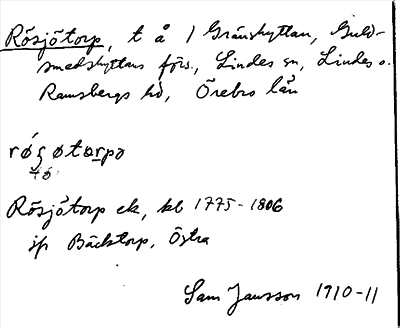 Rösjötorp, t å 1 Gränshyttan, Guld-
smedshyttans förs., Lindes sn, Lindes o.
Ramsbergs hd, Örebro län
Rösjötorp ek, kb 1775-1806
jfr Bäckstorp, Östra
Sam Jansson 1910-11